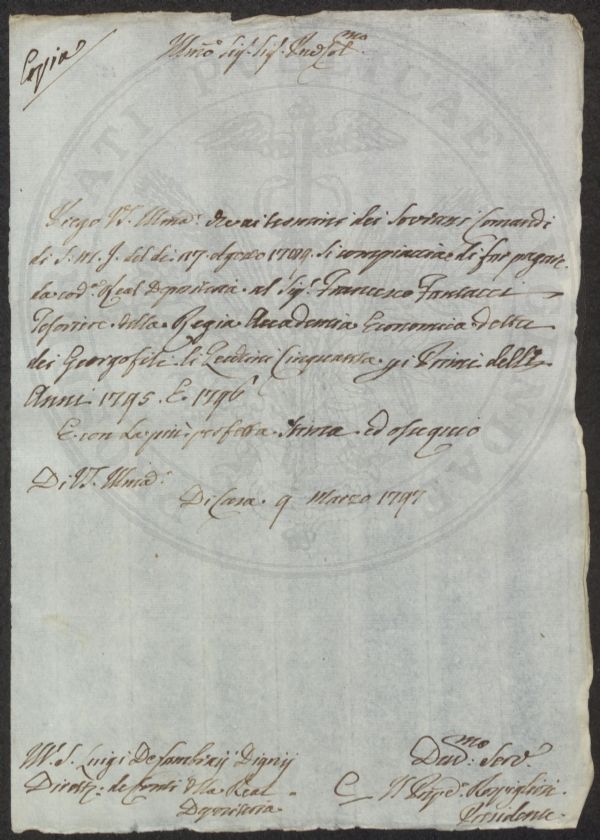 Copia
Illmo Sigr. Sigr. Prone Colmo
Priego VS. Illma. che ai termini dei Sovrani Comandi
di S. M. I. del dì 17. Agosto 1789. Si compiaccia di far pagare
da cod.a Real Depositeria al Sigr. Francesco Fantacci
Tesoriere della Regia Accademia Economica detta
dei Georgofili li Zecchini Cinquanta p i Primi dell'
Anni 1795. E 1796
E con la più perfetta stima ed ossequio
Di VS. Illma.
Di Casa 9 Marzo 1797
Luigi De Cambray Digny
Dirett. de Conti della Real
Depositeria
Devmo Serv.
Presidente
PUBLICAE